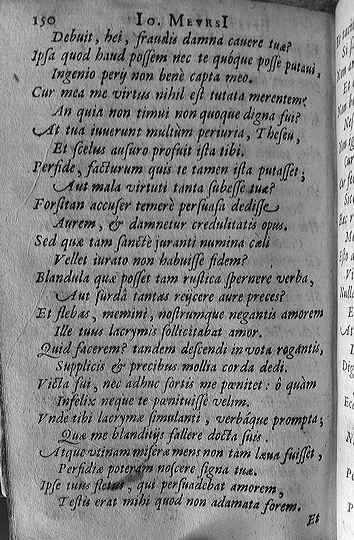 150 Io. MevrsI
Debuit, hei, fraudis damna cavere tuæ?
Ipſa quod haud poſſem nec te quoque poſſe putavi,
Ingenio perij non benè capta meo.
Cur mea me virtus nihil eſt tutata merentem?
An quia non timui non quoque digna fui?
At tua iuverunt multùm periuria, Theſeu,
Et ſcelus auſuro profuit iſta tibi.
Perfide, facturum quis te tamen iſta putaſſet;
Aut mala virtuti tanta ſubeſſe tuæ?
Forſitan accuſer temerè perſuaſa dediſſe
Aurem, & damnetur credulitatis opus.
Sed quæ tam ſanctè juranti numina cæli
Vellet iurato non habuiſſe fidem?
Blandula quæ poſſet tam ruſtica ſpernere verba,
Aut ſurda tantas reijcere aure preces?
Et flebas, memini, noſtrumque negantis amorem
Ille tuus lacrymis ſollicitabat amor.
Quid facerem? tandem deſcendi in vota rogantis,
Supplicis & precibus mollia corda dedi.
Victa fui, nec adhuc fortis me pœnitet: ô quàm
Infelix neque te pœnituiſſe velim.
Vnde tibi lacrymæ ſimulanti, verbáque prompta;
Quæ me blanditijs fallere docta ſuis.
Atque vtinam miſeræ mens non tam læua fuiſſet,
Perfidiæ poteram noſcere ſigna tuæ.
Ipſe tuus fletus, qui perſuadebat amorem,
Teſtis erat mihi quod non adamata forem.
Et